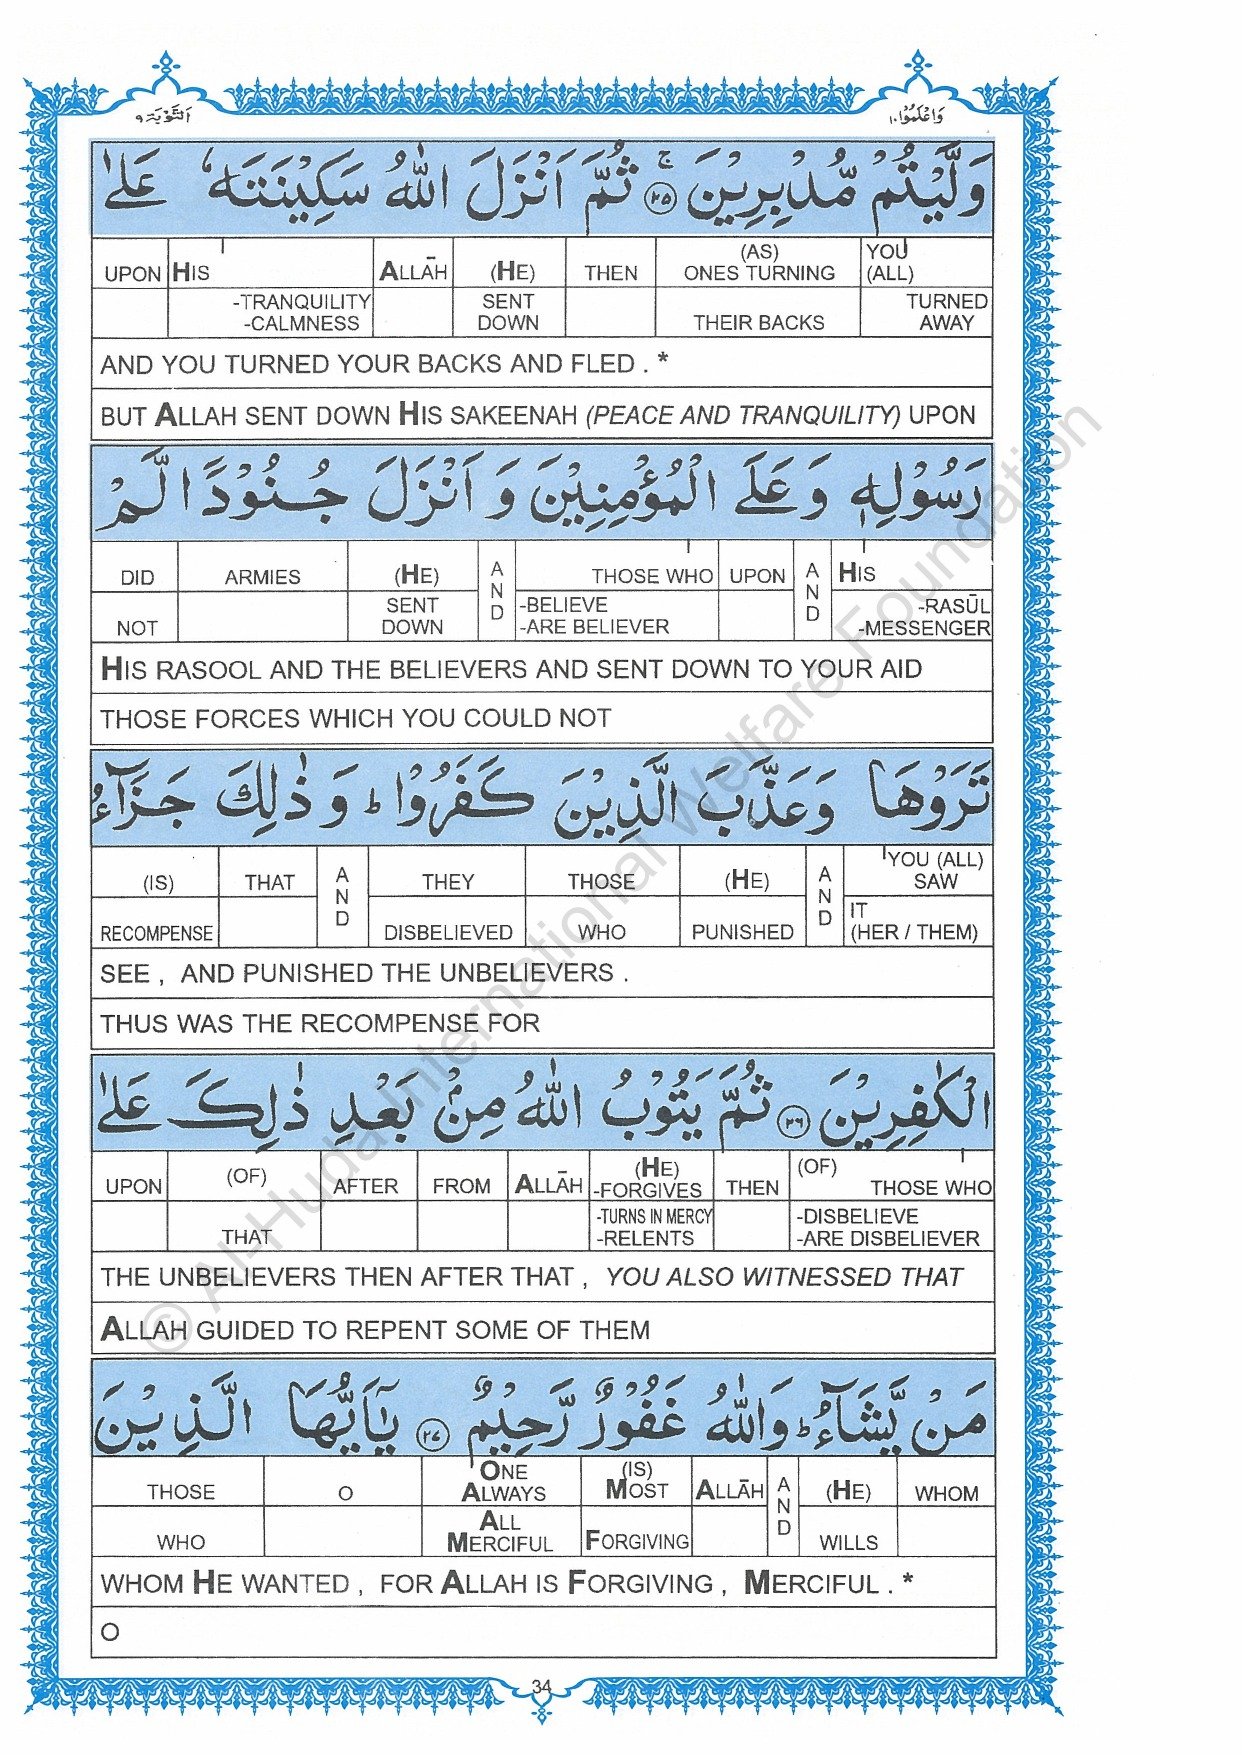 اَلتَّوْبَة ٩
وَاعْلَمُوْا ١٠
وَلَّيْتُمْ مُّدْبِرِيْنَ ۚ ﴿٢٥﴾ ثُمَّ اَنْزَلَ اللّٰهُ سَكِيْنَتَهٗ عَلٰى
UPON HIS ALLĀH (HE) THEN (AS) ONES TURNING YOU (ALL)
-TRANQUILITY -CALMNESS SENT DOWN THEIR BACKS TURNED AWAY
AND YOU TURNED YOUR BACKS AND FLED . *
BUT ALLAH SENT DOWN HIS SAKEENAH (PEACE AND TRANQUILITY) UPON
رَسُوْلِهٖ وَ عَلَى الْمُؤْمِنِيْنَ وَ اَنْزَلَ جُنُوْدًا لَّمْ
DID ARMIES (HE) AND THOSE WHO UPON AND HIS
NOT SENT DOWN -BELIEVE -ARE BELIEVER -RASŪL -MESSENGER
HIS RASOOL AND THE BELIEVERS AND SENT DOWN TO YOUR AID
THOSE FORCES WHICH YOU COULD NOT
تَرَوْهَا وَ عَذَّبَ الَّذِيْنَ كَفَرُوْا ؕ وَ ذٰلِكَ جَزَآءُ
(IS) THAT AND THEY THOSE (HE) AND YOU (ALL) SAW
RECOMPENSE DISBELIEVED WHO PUNISHED IT (HER / THEM)
SEE , AND PUNISHED THE UNBELIEVERS .
THUS WAS THE RECOMPENSE FOR
الْكٰفِرِيْنَ ﴿٢٦﴾ ثُمَّ يَتُوْبُ اللّٰهُ مِنْۢ بَعْدِ ذٰلِكَ عَلٰى
UPON (OF) AFTER FROM ALLĀH (HE) -FORGIVES THEN (OF) THOSE WHO
THAT -TURNS IN MERCY -RELENTS -DISBELIEVE -ARE DISBELIEVER
THE UNBELIEVERS THEN AFTER THAT , YOU ALSO WITNESSED THAT
ALLAH GUIDED TO REPENT SOME OF THEM
مَنْ يَّشَآءُ ؕ وَاللّٰهُ غَفُوْرٌ رَّحِيْمٌ ﴿٢٧﴾ يٰۤاَيُّهَا الَّذِيْنَ
THOSE O ONE ALWAYS (IS) MOST ALLĀH AND (HE) WHOM
WHO ALL MERCIFUL FORGIVING WILLS
WHOM HE WANTED , FOR ALLAH IS FORGIVING , MERCIFUL . *
O
34
© Al-Huda International Welfare Foundation